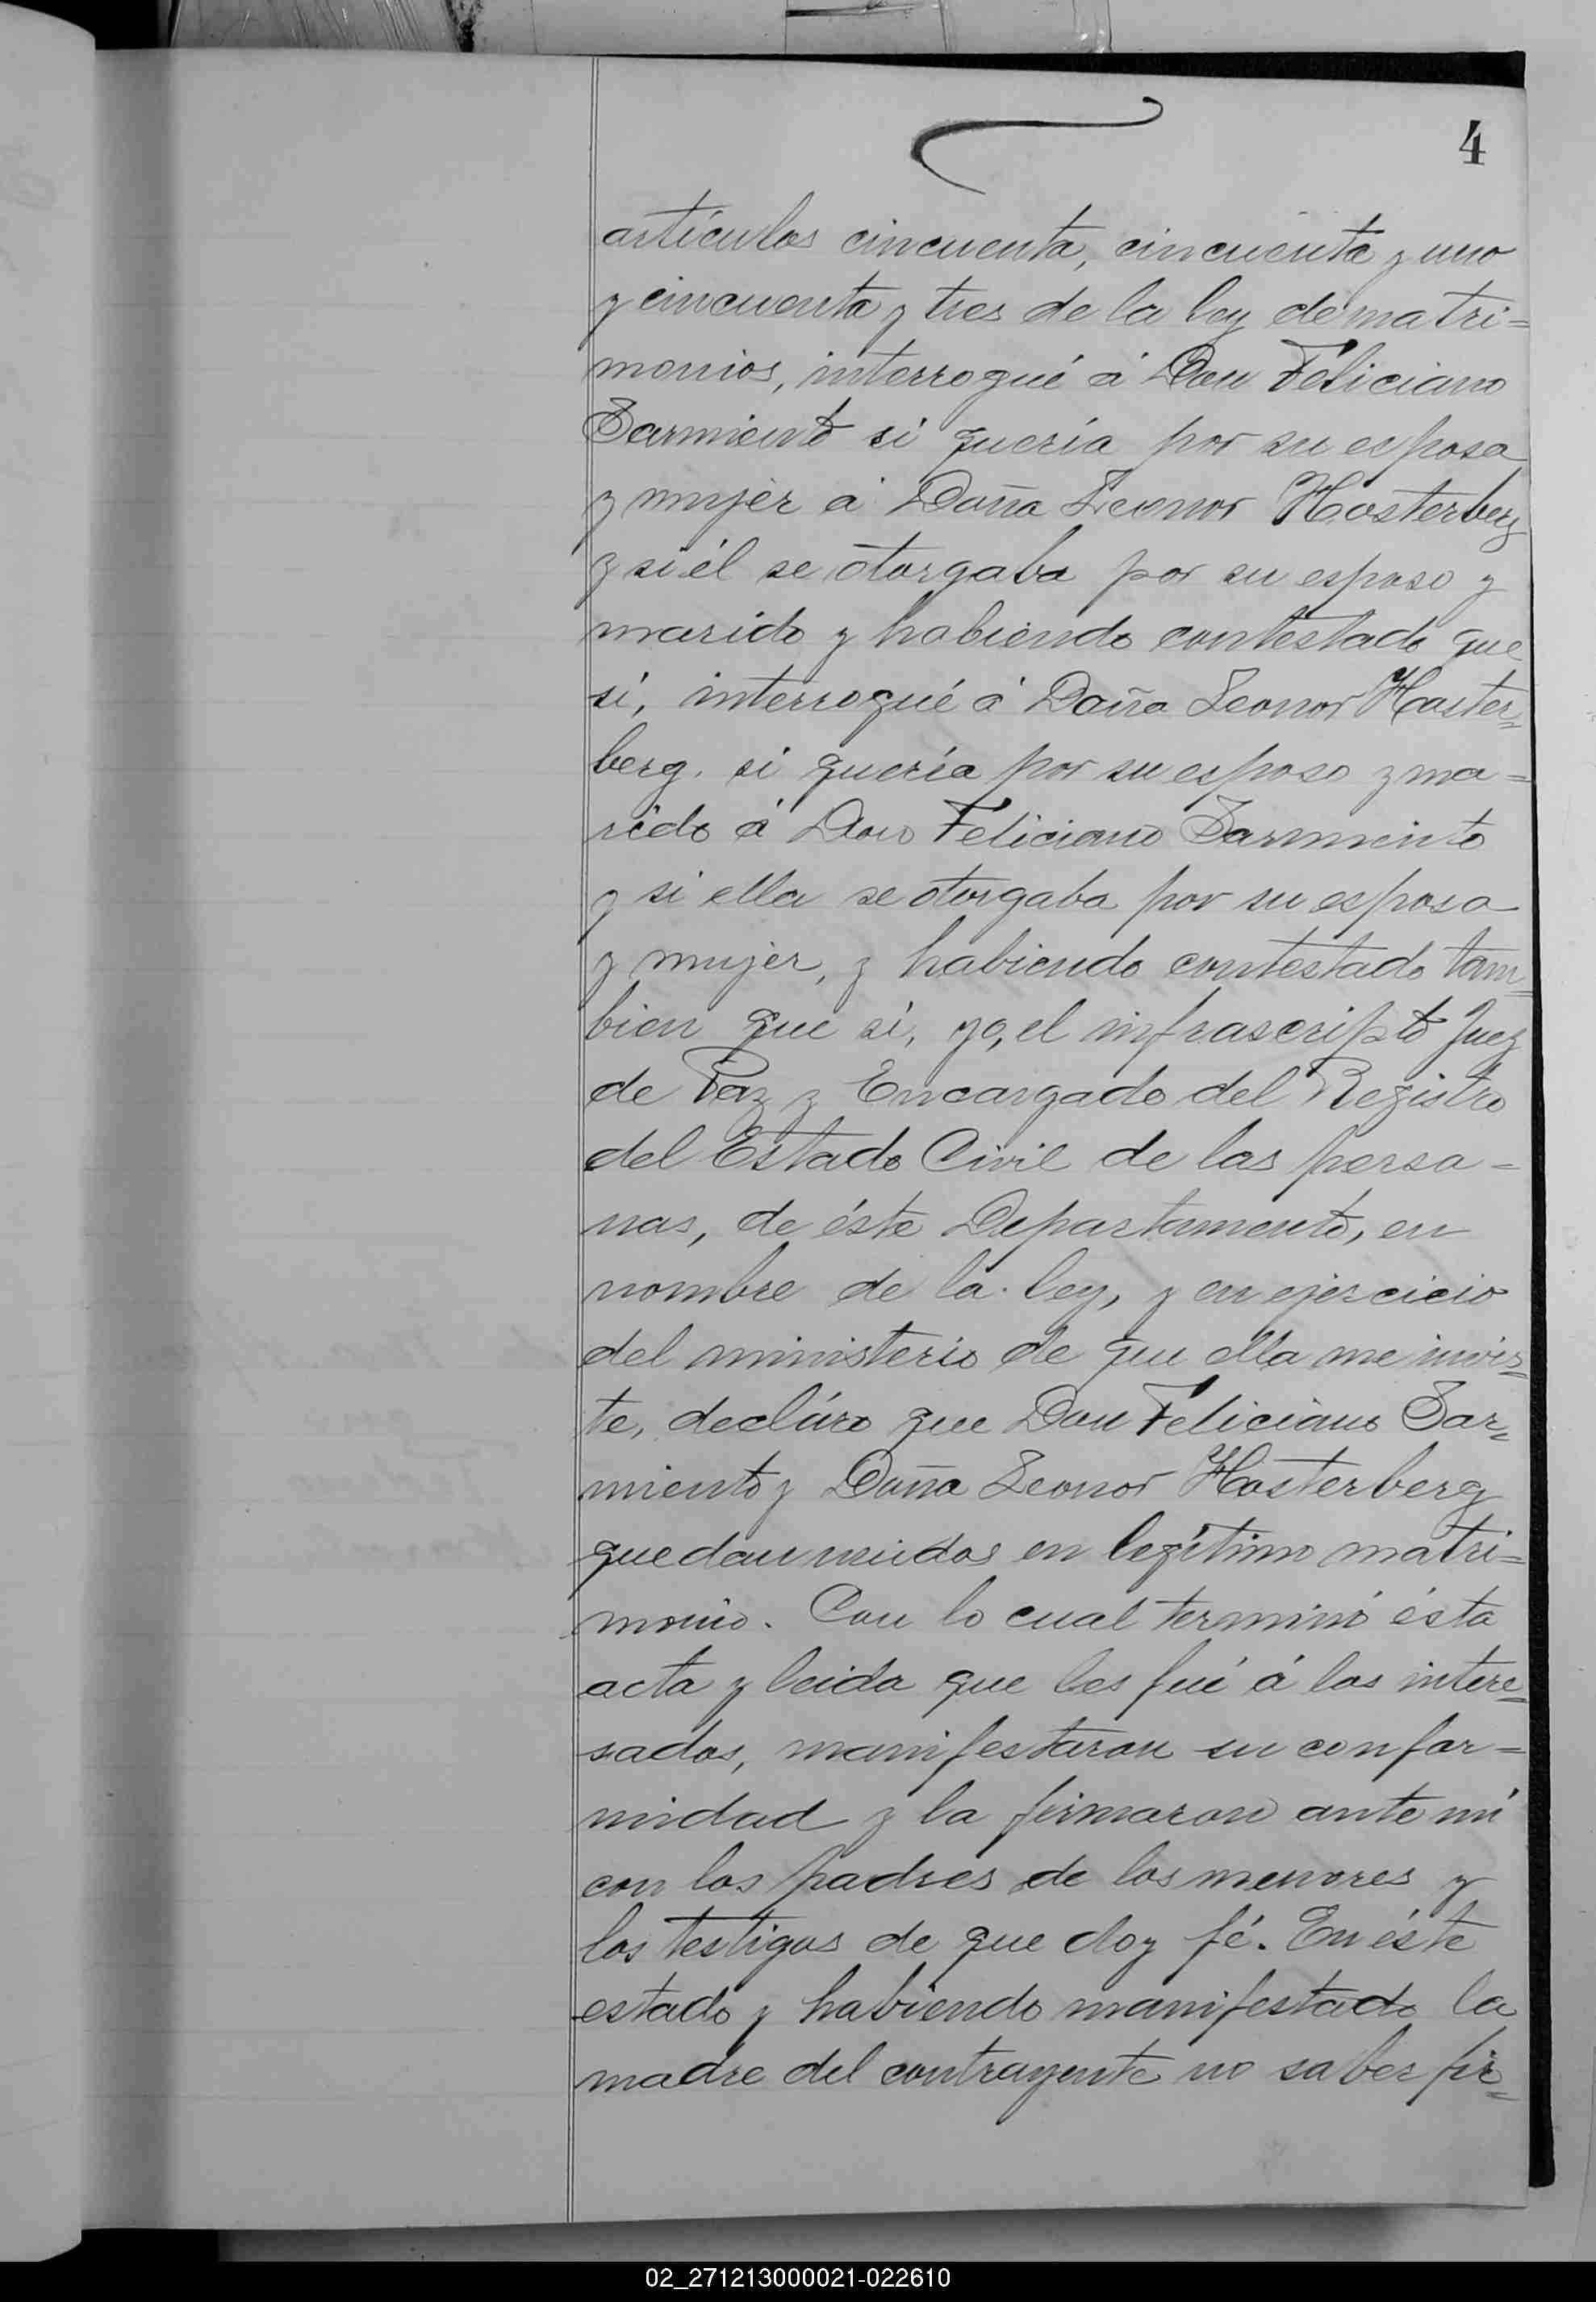 4
artículos cincuenta, cincuenta y uno
y cincuenta y tres de la ley de matri=
monios, interrogué á Don Feliciano
Sarmiento si quería por su esposa
y mujer á Doña Leonor Hosterberg
y si él se otorgaba por su esposo y
marido y habiendo contestado que
sí, interrogué á Doña Leonor Hoster=
berg. si quería por su esposo y ma=
rido á Don Feliciano Sarmiento
y si ella se otorgaba por su esposa
y mujer, y habiendo contestado tam=
bien que sí, yo, el infrascripto Juez
de Paz y Encargado del Registro
del Estado Civil de las perso=
nas, de éste Departamento, en
nombre de la ley, y en ejercicio
del ministerio de que ella me invis=
te, decláro que Don Feliciano Sar=
miento y Doña Leonor Hosterberg
quedan unidos en legítimo matri=
monio. Con lo cual terminó ésta
acta y leida que les fué á los intere=
sados, manifestaron su confor=
midad y la firmaron ante mí
con los padres de los menores y
los testigos de que doy fé. En éste
estado y habiendo manifestado la
madre del contrayente no saber fir=
02_271213000021-022610